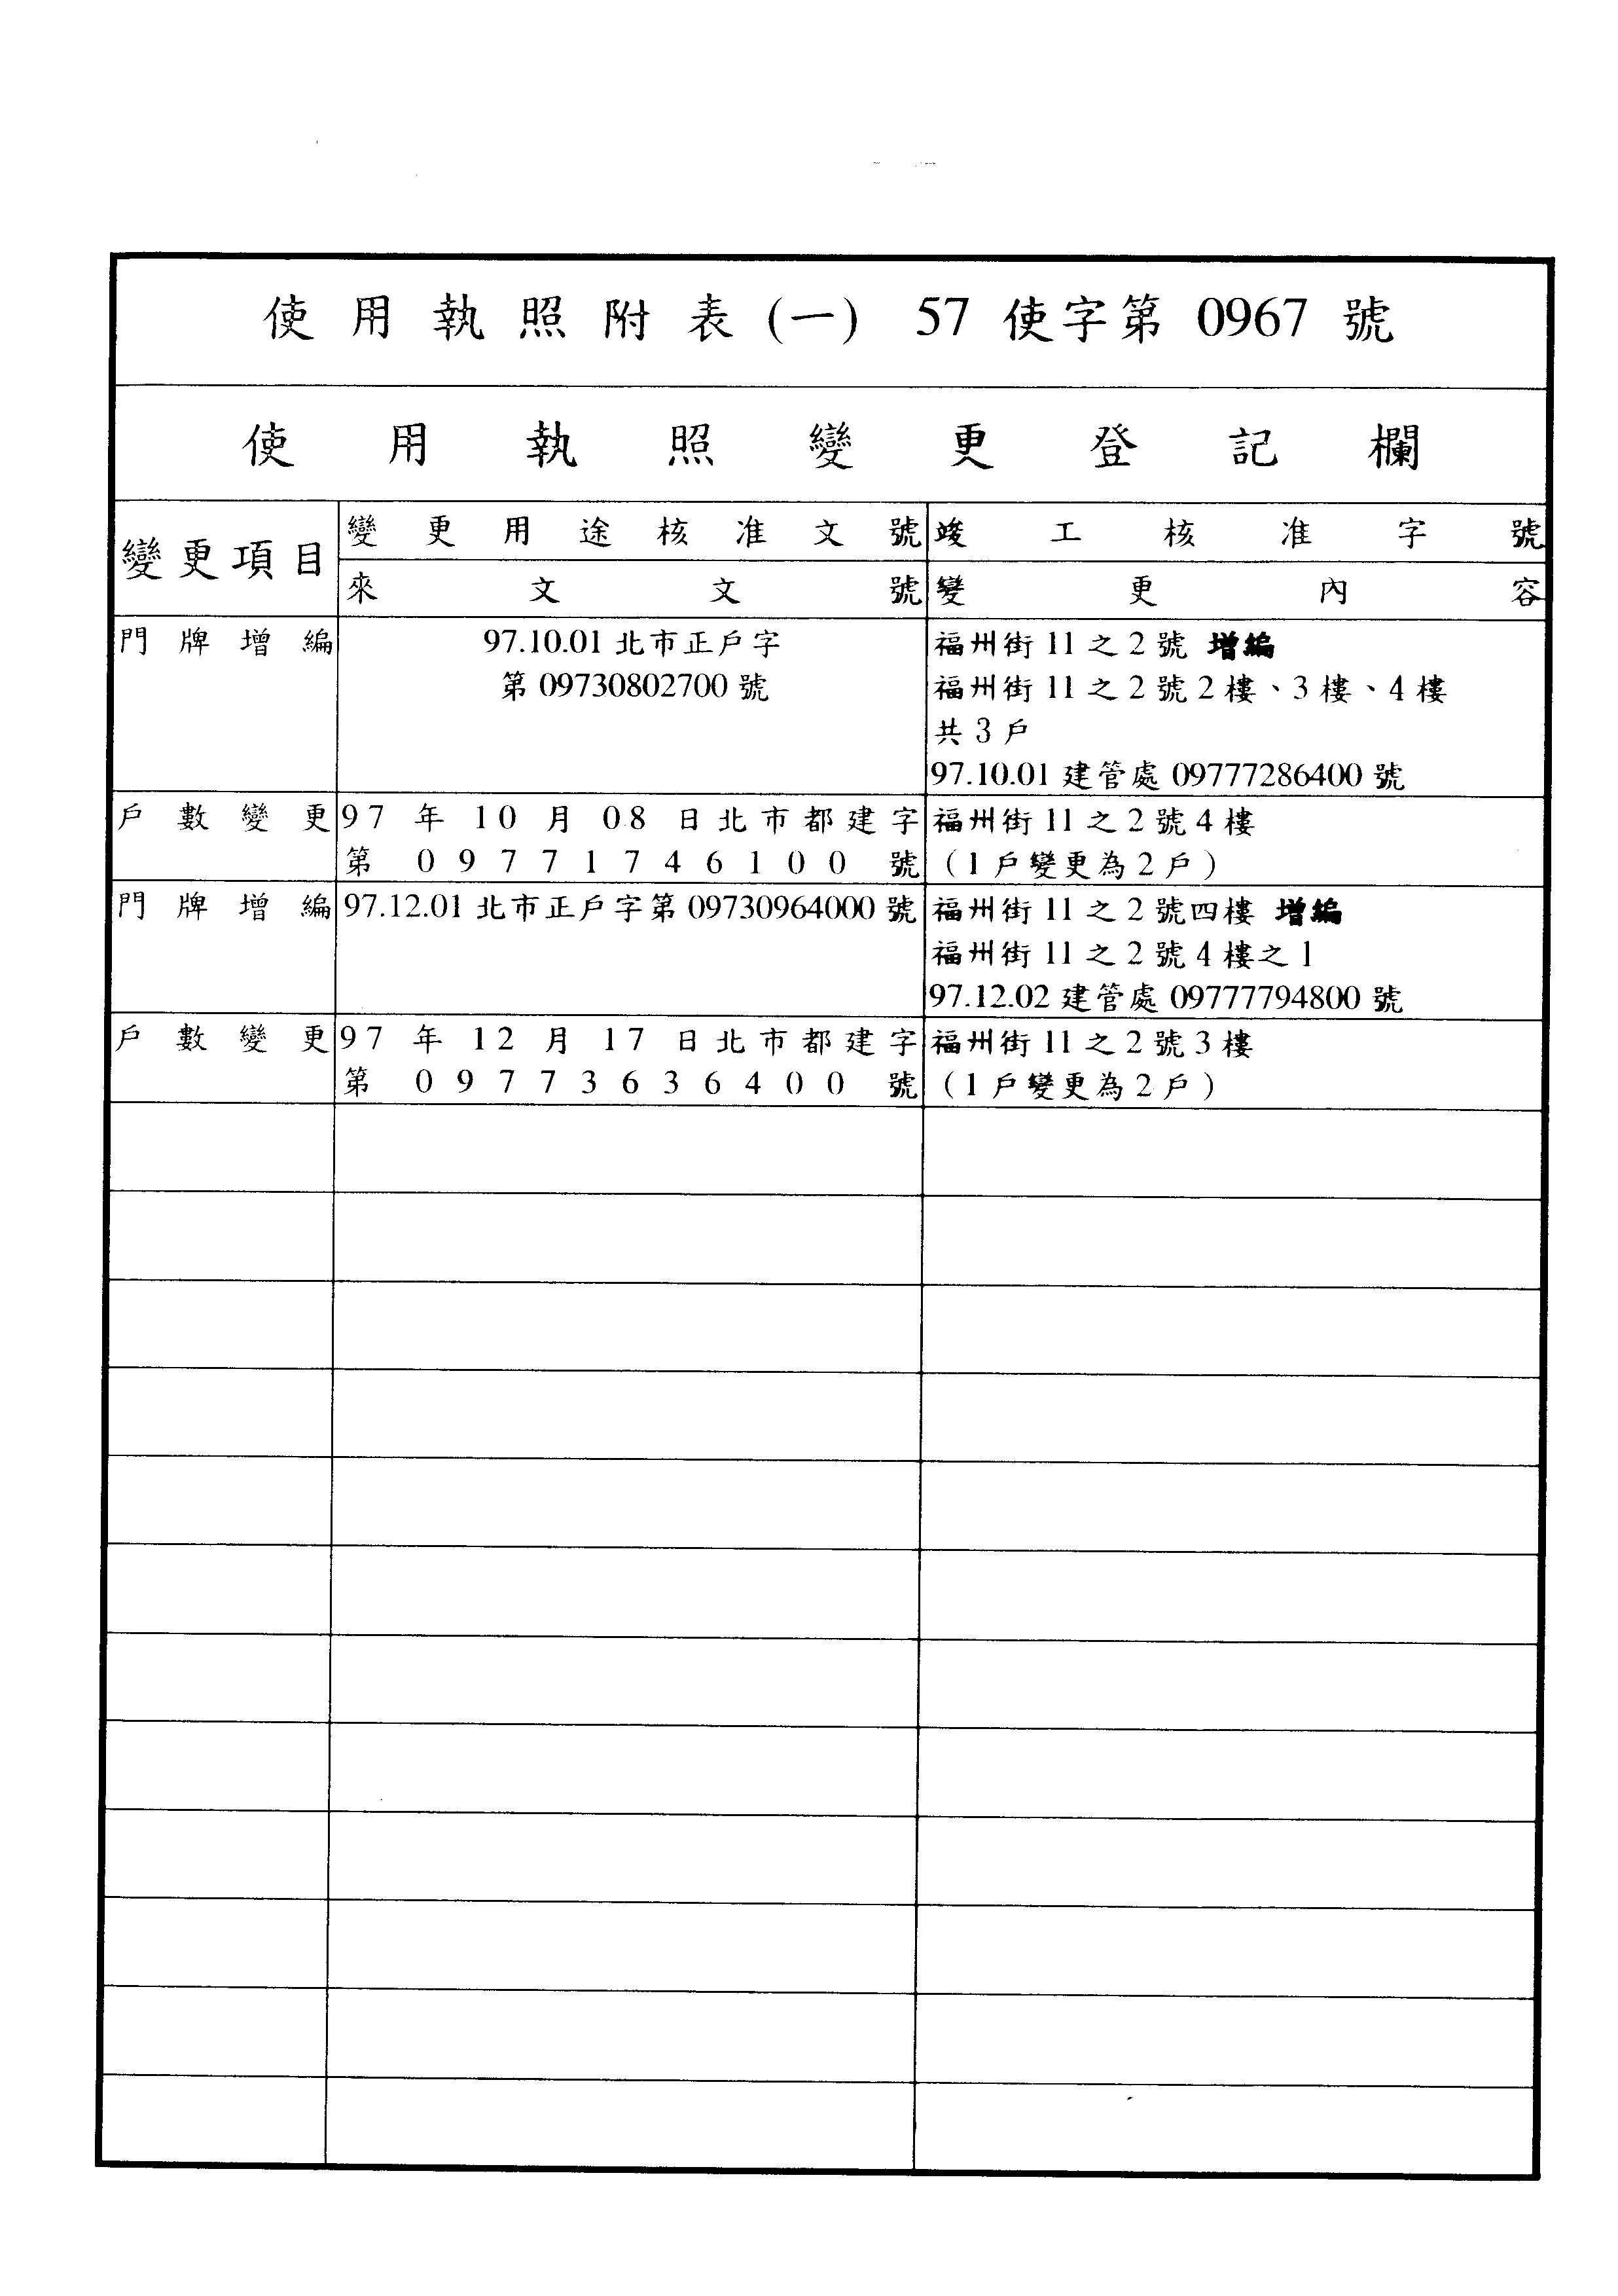 使用執照附表(一) 57使字第0967號
使用執照變更登記欄
變更項目
變更用途核准文號
竣工核准字號
來文文號
變更內容
門牌增編
97.10.01北市正戶字
第09730802700號
福州街11之2號 增編
福州街11之2號2樓、3樓、4樓
共3戶
97.10.01建管處09777286400號
戶數變更
97年10月08日北市都建字
第09771746100號
福州街11之2號4樓
(1戶變更為2戶)
門牌增編
97.12.01北市正戶字第09730964000號
福州街11之2號四樓 增編
福州街11之2號4樓之1
97.12.02建管處09777794800號
戶數變更
97年12月17日北市都建字
第09773636400號
福州街11之2號3樓
(1戶變更為2戶)